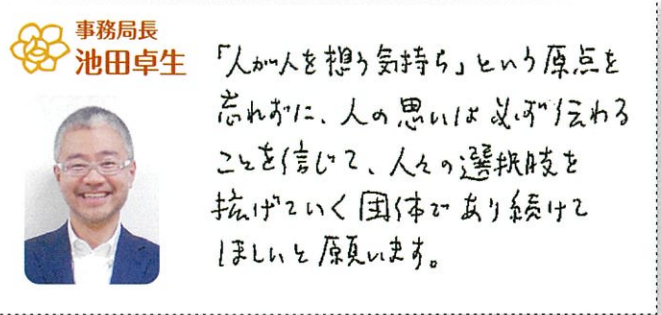 事務局長
池田卓生
「人が人を想う気持ち」という原点を
忘れずに、人の思いは必ず伝わる
ことを信じて、人々の選択肢を
拡げていく団体であり続けて
ほしいと願います。